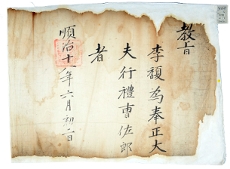 教旨
李䅘為奉正大
夫行禮曹佐郎
者
順治十一年六月初六日